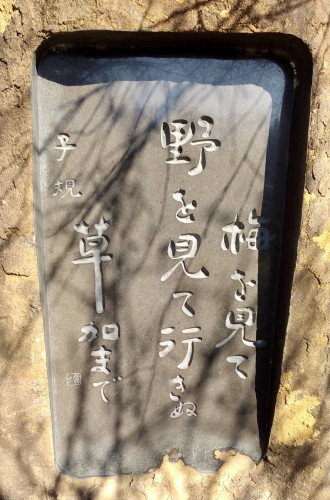 梅を見て
野を見て行きぬ
草加まで
子規